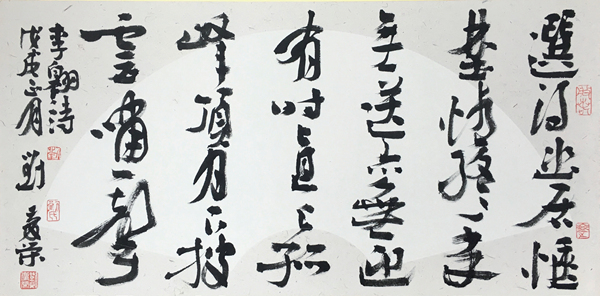 選得幽居愜
埜情終年
無送亦無迎
有時直上孤
峰頂月下披
雲嘯一聲
李翱詩
戊戌正月 劉榮